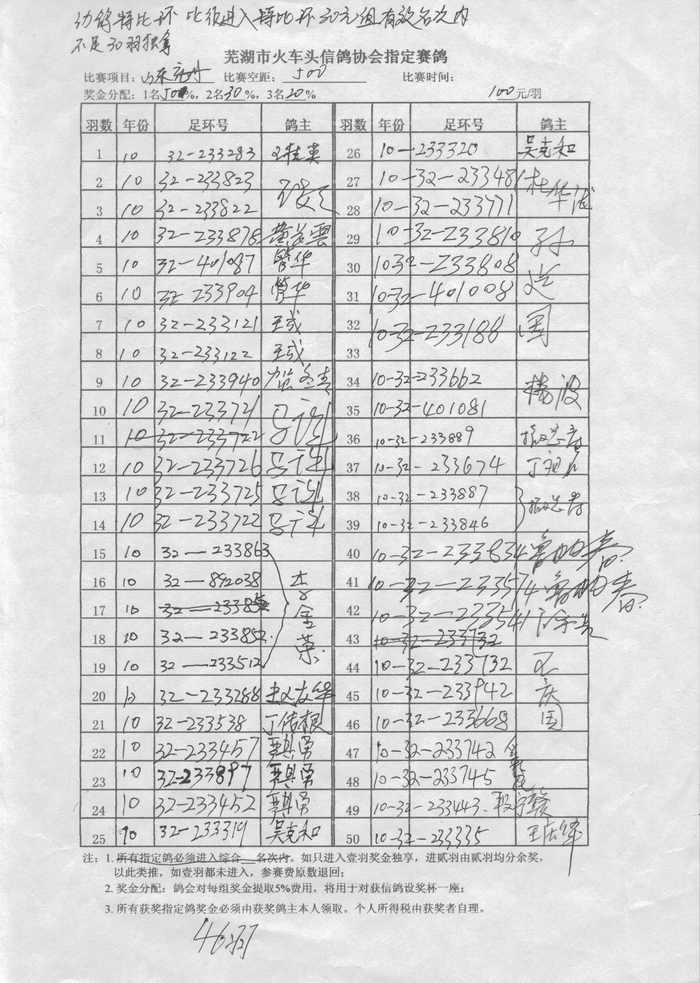 幼鸽特比环 必须进入特比环30元组有效名次内
不足30羽独拿
芜湖市火车头信鸽协会指定赛鸽
比赛项目：山东兖州 比赛空距：500 比赛时间：
奖金分配：1名50%，2名30%，3名20% 100元/羽
羽数 年份 足环号 鸽主 羽数 年份 足环号 鸽主
1 10 32-233283 王桂英 26 10-233320 吴克和
2 10 32-233823 27 10-32-233481 杜华
3 10 32-233822 28 10-32-233771
4 10 32-233878 29 10-32-233810 孙
5 10 32-401087 管华 30 1032-233808
6 10 32-233904 管华 31 10-32-401008
7 10 32-233121 王成 32 10-32-233188 国
8 10 32-233122 王成 33
9 10 32-233940 34 10-32-233662 杨波
10 10 32-233721 35 10-32-401081
11 10 32-233722 36 10-32-233889
12 10 32-233726 37 10-32-233674
13 10 32-233725 38 10-32-233887
14 10 32-233722 39 10-32-233846
15 10 32-233863 40 10-32-233834
16 10 32-892038 李金荣 41 10-32-233574
17 10 32-23385 42 10-32-233541
18 10 32-233852 43 10-32-233732
19 10 32-233512 44 10-32-233732 王庆国
20 10 32-233288 45 10-32-233942
21 10 32-233538 丁传根 46 10-32-233668
22 10 32-233457 47 10-32-233742
23 10 32-233897 48 10-32-233745
24 10 32-233452 49 10-32-233443
25 10 32-233319 吴克和 50 10-32-233335
注：1. 所有指定鸽必须进入综合 名次内。如只进入壹羽奖金独享，进贰羽由贰羽均分余奖，
以此类推，如壹羽都未进入，参赛费原数退回；
2. 奖金分配：鸽会对每组奖金提取5%费用，将用于对获信鸽设奖杯一座；
3. 所有获奖指定鸽奖金必须由获奖鸽主本人领取。个人所得税由获奖者自理。
46羽